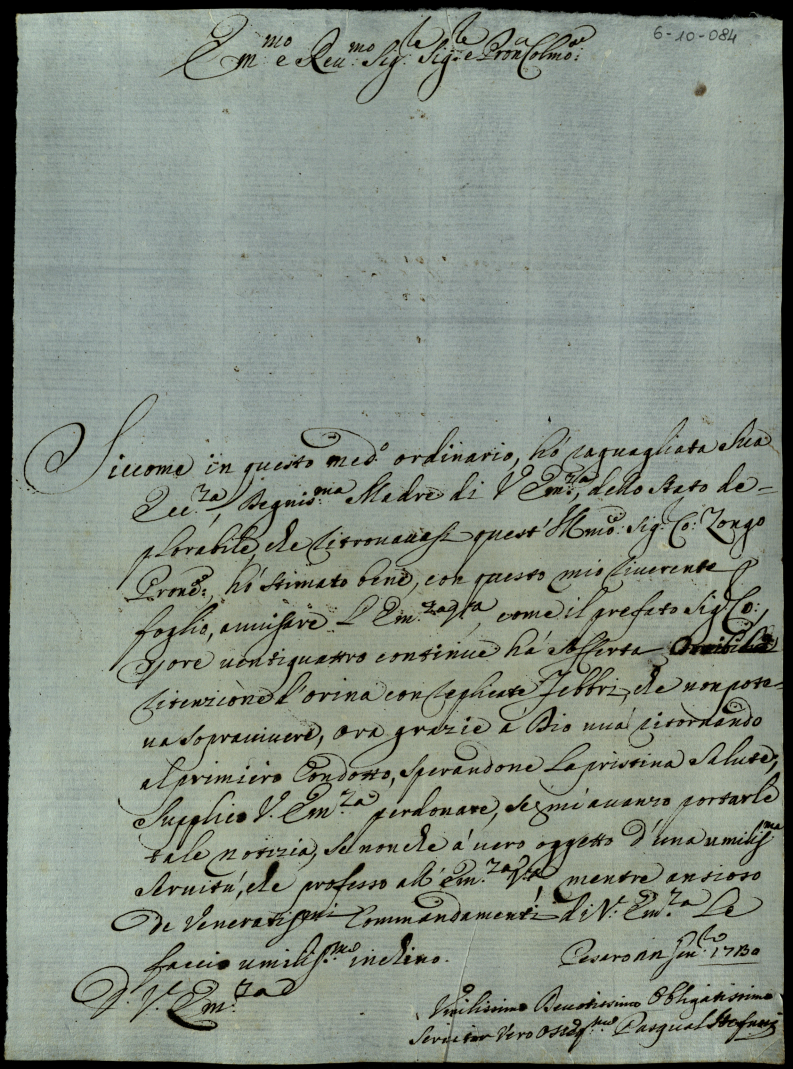 6-10-084
Em.mo e Reu.mo Sig.re Sig.re e Pron Colmo:
Siccome in questo med.o ordinario, hò raguagliata Sua
Ecc.za, Degnis.ma Madre di V. Em.za, dello stato de=
plorabile, che ritrouauasi quest' Ill.mo Sig. Co: Zongo
Prone:, hò stimato bene, con questo mio riuerente
foglio, auuisare L'Em.za V.ra, come il prefato Sig. Co:,
p ore uentiquattro continue hà sofferta
ritenzione d'orina con replicate Febbri, che non pote=
ua soprauiuere, ora grazie à Dio uuà ritornando
al primiero Condotto, sperandone La pristina Salute,
Supplico V. Em.za perdonare, se mi auanzo portarle
tale notizia, se non che à uero oggetto d'una umilis.ma
seruitù, che professo all' Em.za V.ra mentre ansioso
De Veneratis.mi Commandamenti di V. Em.za Le
faccio umilis.mo inchino.
Pesaro 1730
D. V. Em.za
Vmilissimo Deuotissimo Obligatissimo
Seruitor Vero Osseq.mo Pasqual